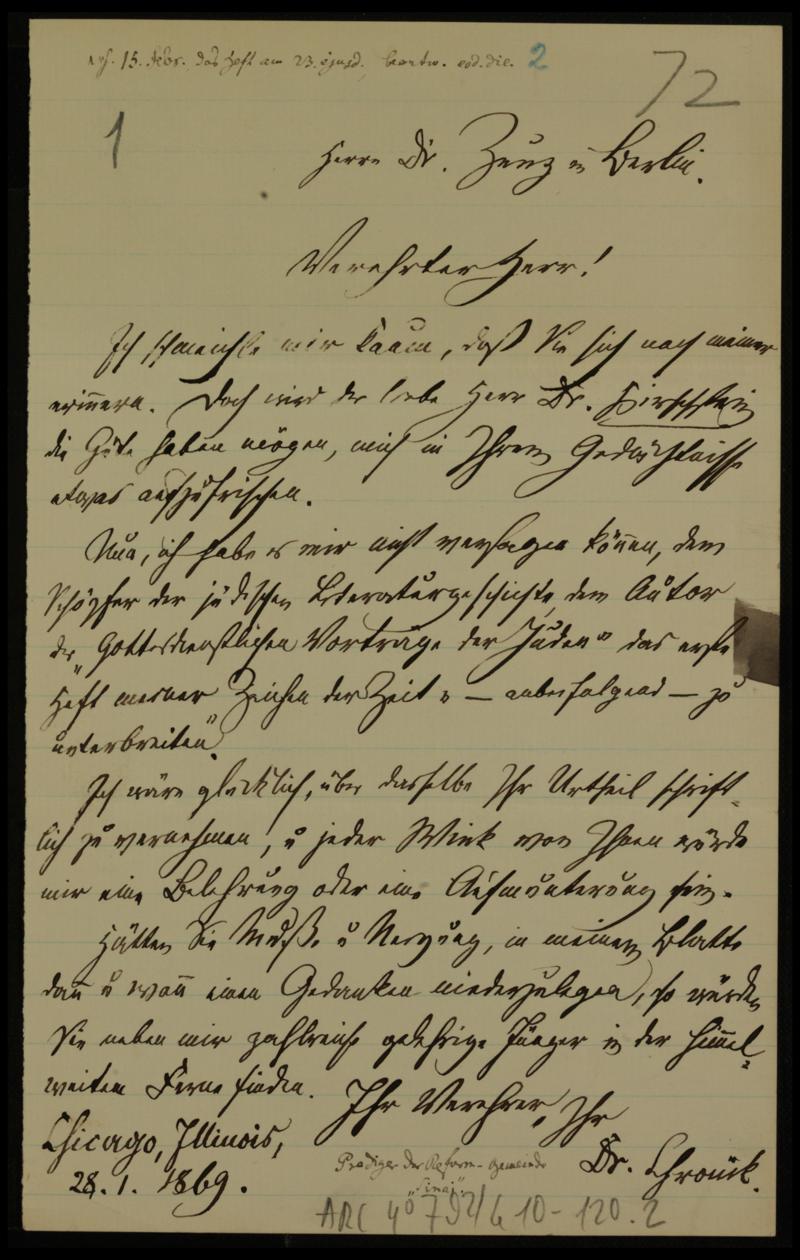 15. Febr. das Heft am 23. ejusd. beantw. eod. die. 2
72
1
Herrn Dr. Zunz in Berlin.
Verehrter Herr!
Ich schmeichle mir kaum, daß Sie sich noch meiner
erinnern. Doch wird der liebe Herr Dr. Hirschstein
die Güte haben mögen, mich in Ihrem Gedächtnisse
etwas aufzufrischen.
Nun, ich habe es mir nicht versagen können, dem
Schöpfer der jüdischen Literaturgeschichte, dem Autor
der „Gottesdienstlichen Vorträge der Juden" das erste
Heft meiner „Zeichen der Zeit" – anbeifolgend – zu
unterbreiten.
Ich wäre glücklich, über dasselbe Ihr Urtheil schrift-
lich zu vernehmen, u jeder Wink von Ihnen würde
mir eine Belehrung oder eine Aufmunterung sein.
Hätten Sie Muße u Neigung, in meinem Blatte
dann u wann einen Gedanken niederzulegen, so würden
Sie neben mir zahlreiche gelehrige Jünger in der himmel-
weiten Ferne finden.
Ihr Verehrer, Ihr
Chicago, Illinois,
28. 1. 1869.
Prediger der Reform-Gemeinde
„Sinai"
Dr. Chronik.
ARC 4° 792/G 10-120.2